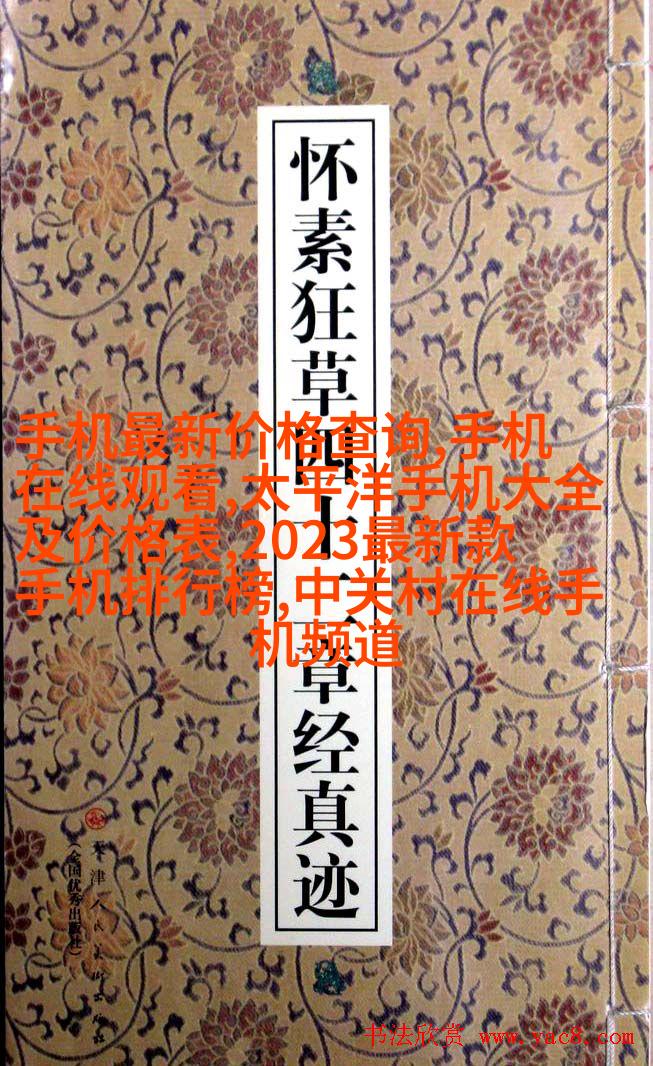 怀素狂草四十二章经真迹
手机最新价格查询,手机
在线观看,太平洋手机大全
及价格表,2023最新款
手机排行榜,中关村在线手
机频道
天津人民美术出版社
(全国优秀出版社)
书法欣赏 www.yac8.com